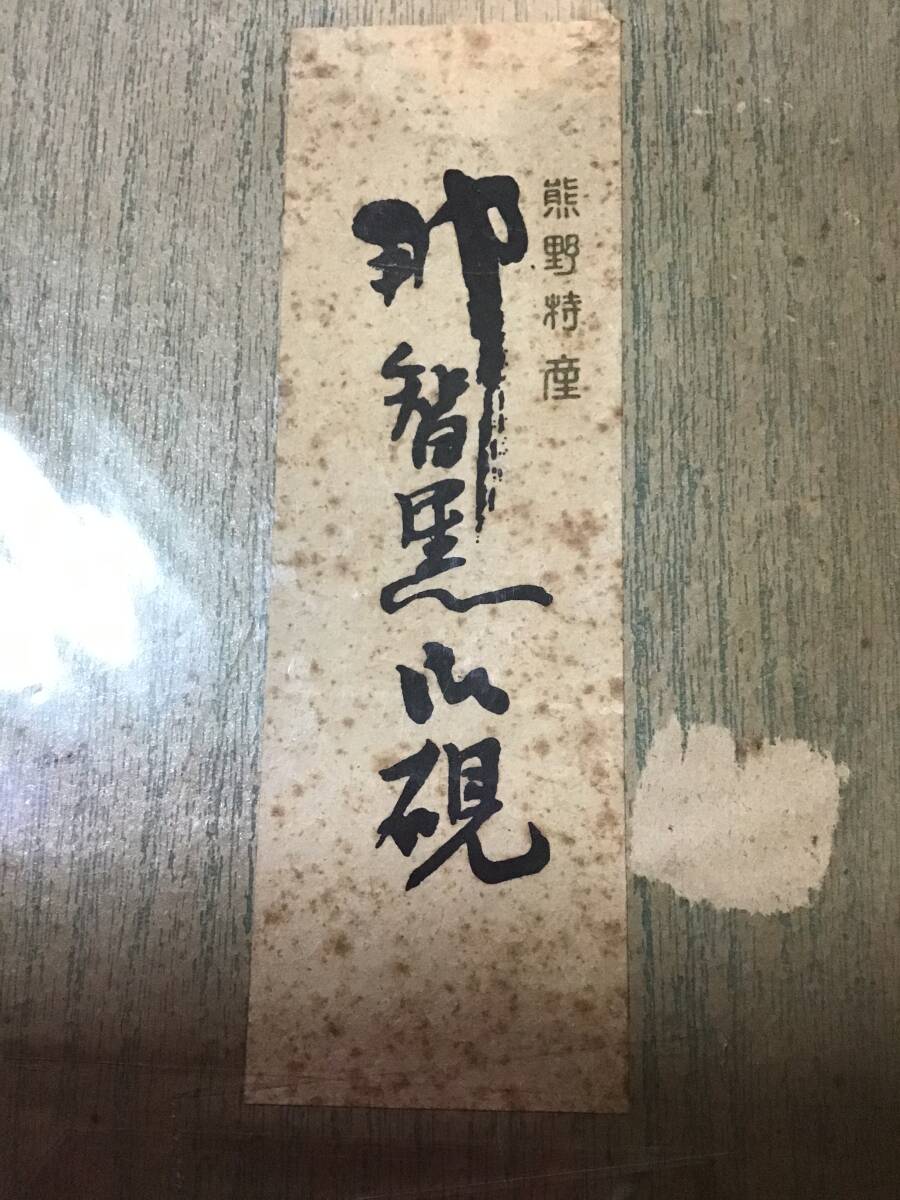 熊野特産
那智黒御硯